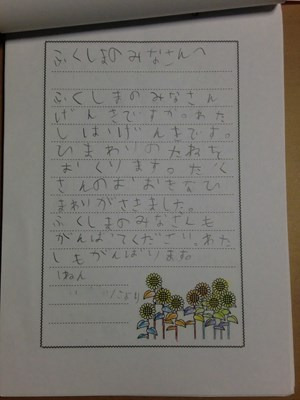 ふくしまのみなさんへ
ふくしまのみなさん
げんきですか。わた
しはげんきです。
ひまわりのたねを
おくります。たく
さんのおおきなひ
まわりがさきました。
ふくしまのみなさんも
がんばてください。わた
しもがんばります。